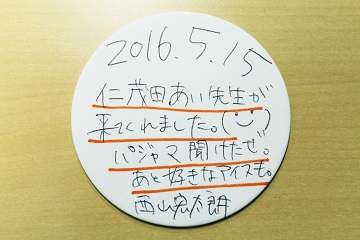 2016.5.15
仁茂田あい先生が
来てくれました。(¨)
パジャマ聞けたぜ。
あと好きなアイスも。
西山宏太朗